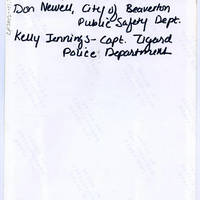 Don Newell, City of Beaverton
Public Safety Dept.
Kelly Jennings - Capt. Tigard
Police Department